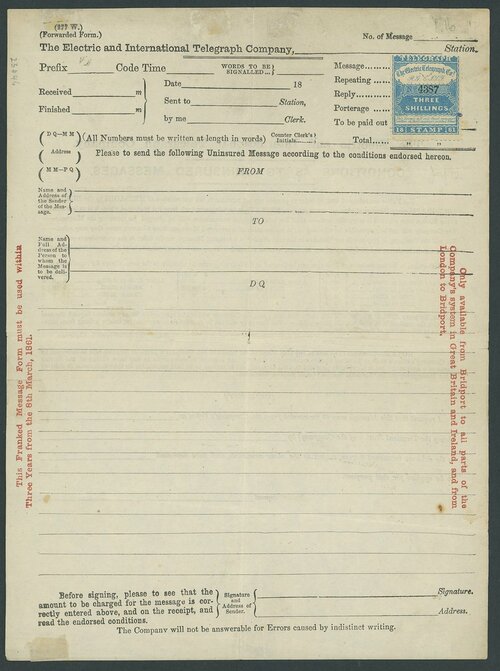 (177 W.)
(Forwarded Form.)
No. of Message
The Electric and International Telegraph Company, Station.
Prefix Code Time WORDS TO BE SIGNALLED...
Message.......
Repeating
Reply
Porterage
To be paid out
Total
TELEGRAPH
The Electric Telegraph Co.
4387
THREE
SHILLINGS
18 STAMP 61
Received m
Finished m
Date 18
Sent to Station,
by me Clerk.
DQ—MM
Address
MM—PQ
(All Numbers must be written at length in words) Counter Clerk's Initials
Please to send the following Uninsured Message according to the conditions endorsed hereon.
FROM
Name and
Address of
the Sender
of the Mes-
sage.
TO
Name and
Full Ad-
dress of the
Person to
whom the
Message is
to be deli-
vered.
DQ
This Franked Message Form must be used within
Three Years from the 8th March, 1861.
Only available from Bridport to all parts of the
Company's system in Great Britain and Ireland, and from
London to Bridport.
Before signing, please to see that the
amount to be charged for the message is cor-
rectly entered above, and on the receipt, and
read the endorsed conditions.
Signature
and
Address of
Sender.
Signature.
Address.
The Company will not be answerable for Errors caused by indistinct writing.